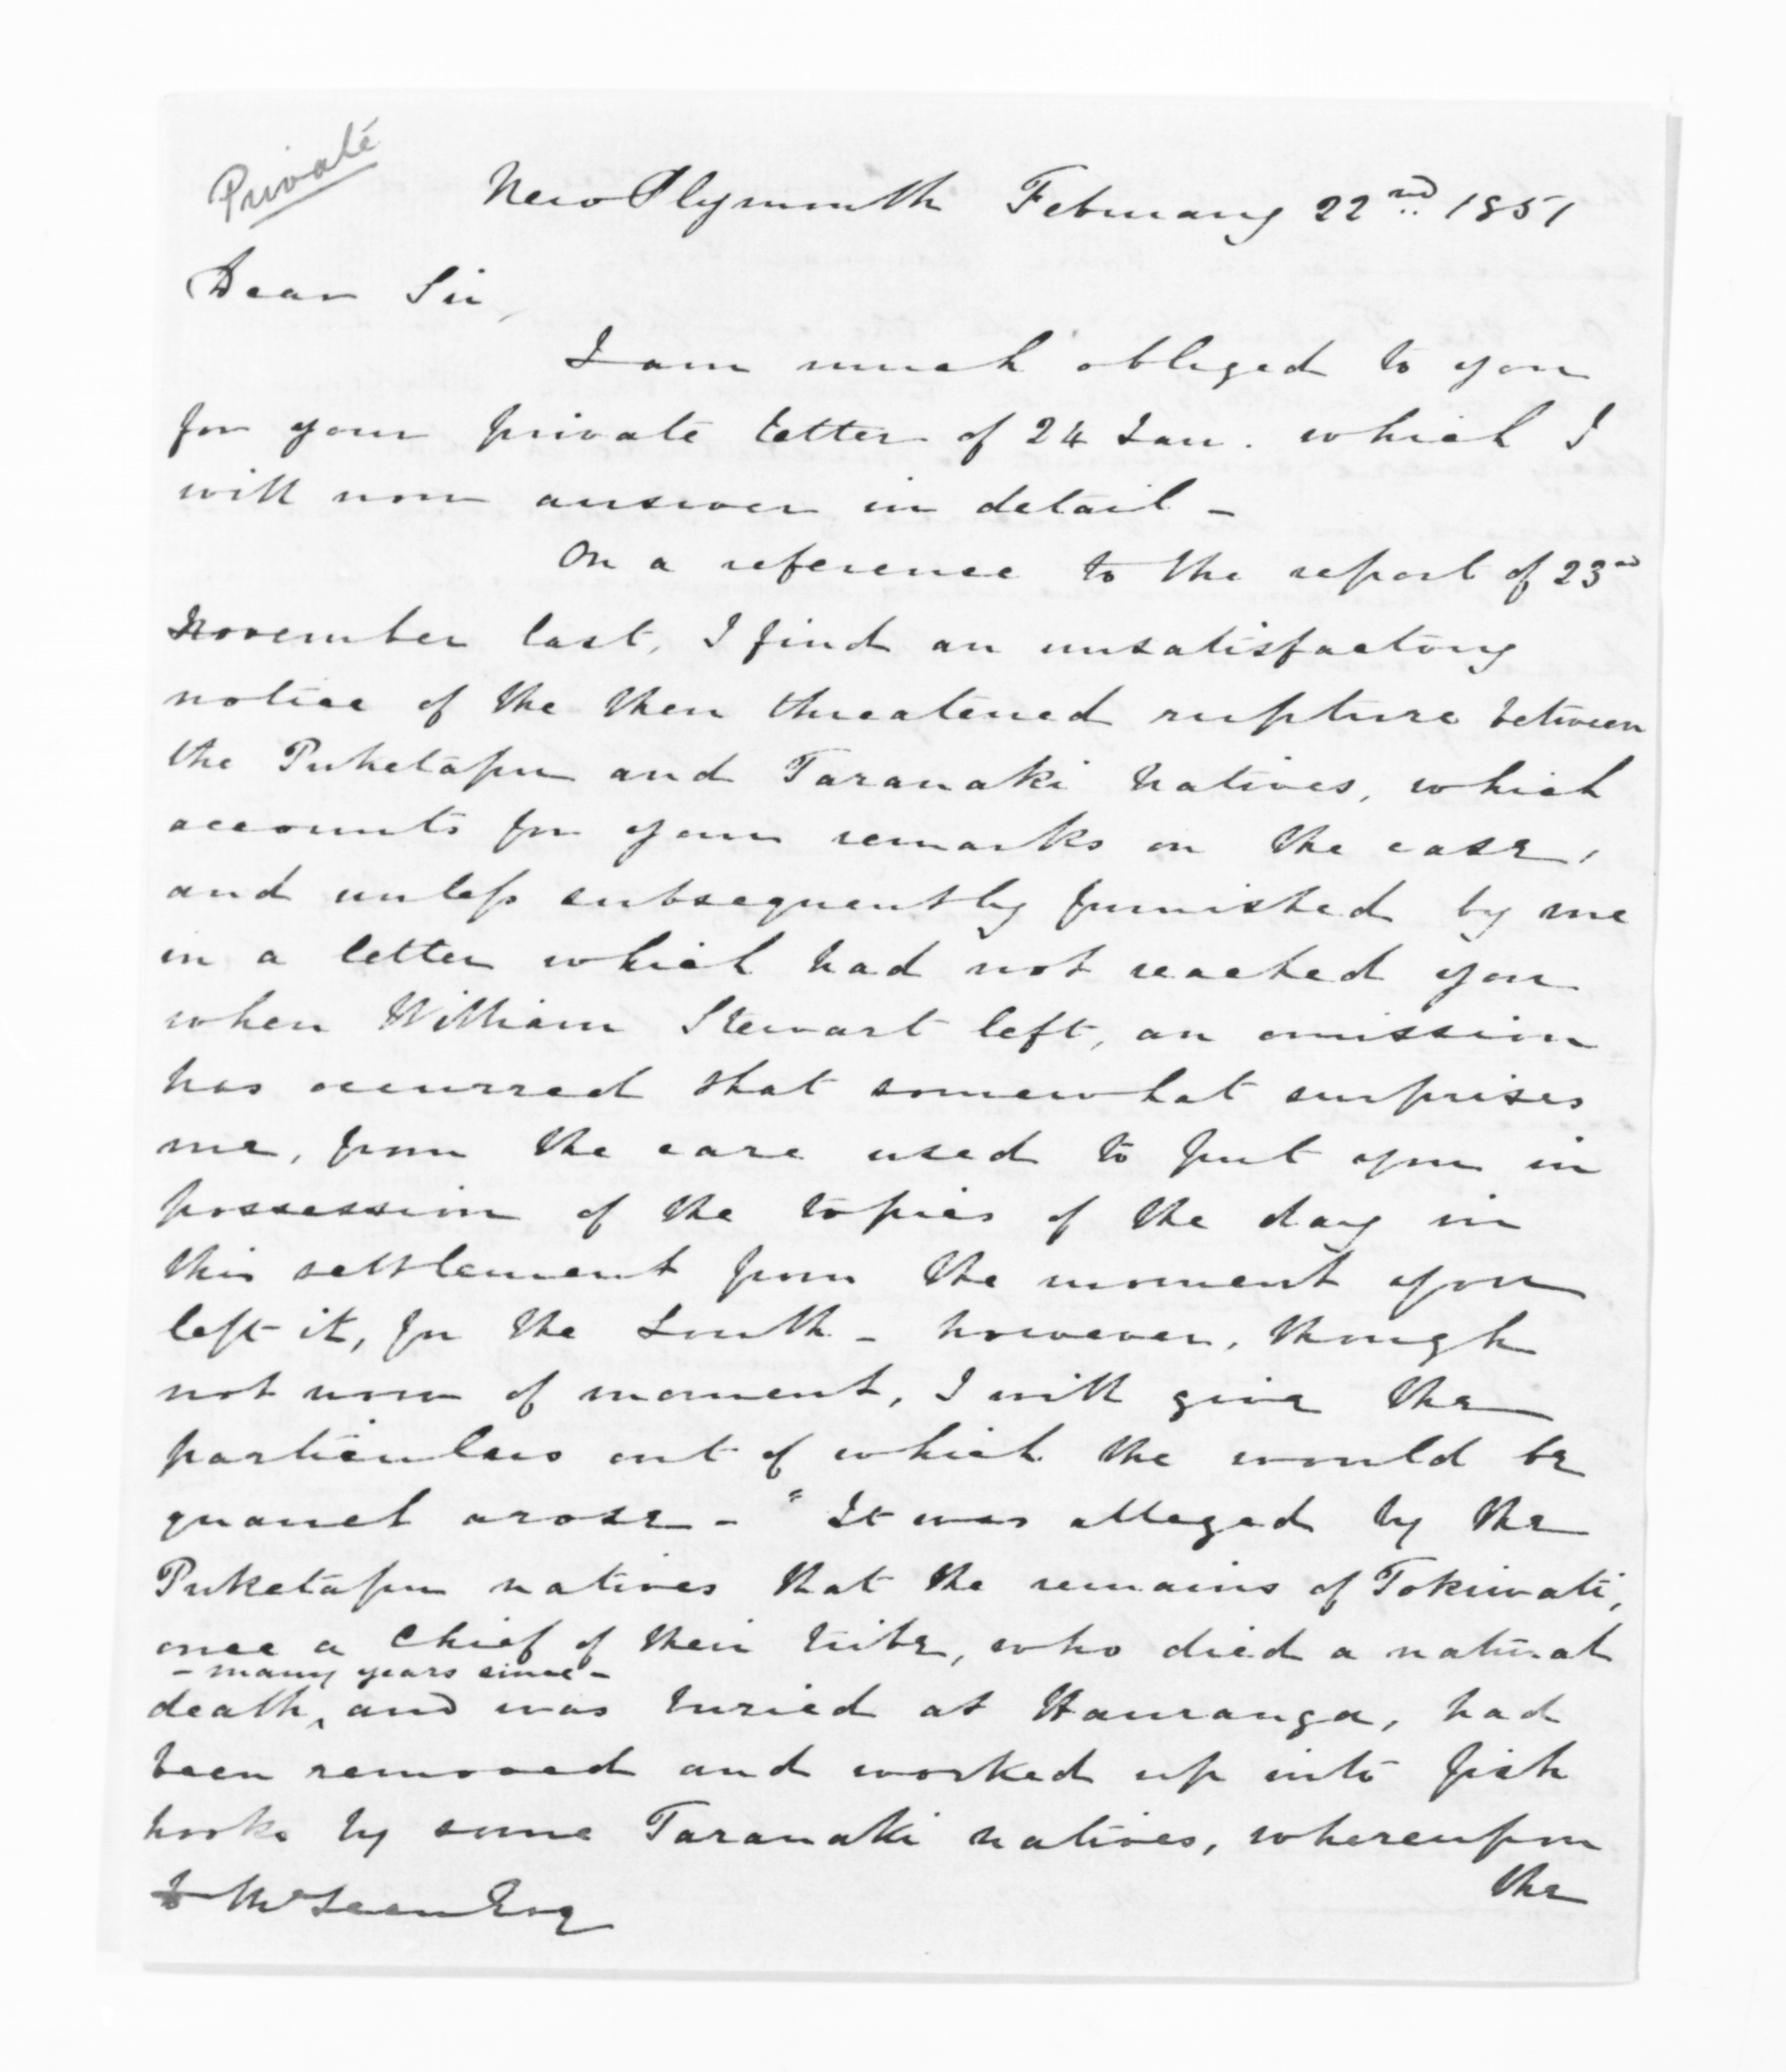 Private
New Plymouth February 22nd 1851
Dear Sir,
I am much obliged to you
for your private letter of 24 Jan. which I
will now answer in detail -
On a reference to the report of 23rd
November last, I find an unsatisfactory
notice of the then threatened rupture between
the Puketapu and Taranaki Natives, which
accounts for your remarks on the case,
and unless subsequently furnished by me
in a letter which had not reached you
when William Stewart left, an omission
has occurred that somewhat surprises
me, from the care used to put you in
possession of the topics of the day in
this settlement from the moment you
left it, for the South - however, though
not now of moment, I will give the
particulars out of which the would be
quarrel arose - "It was alleged by the
Puketapu natives that the remains of Tokiwati,
once a Chief of their tribe, who died a natural
- many years since -
death, and was buried at Hauranga, had
been removed and worked up into fish
hooks by some Taranaki natives, whereupon
the
D McLean Esq